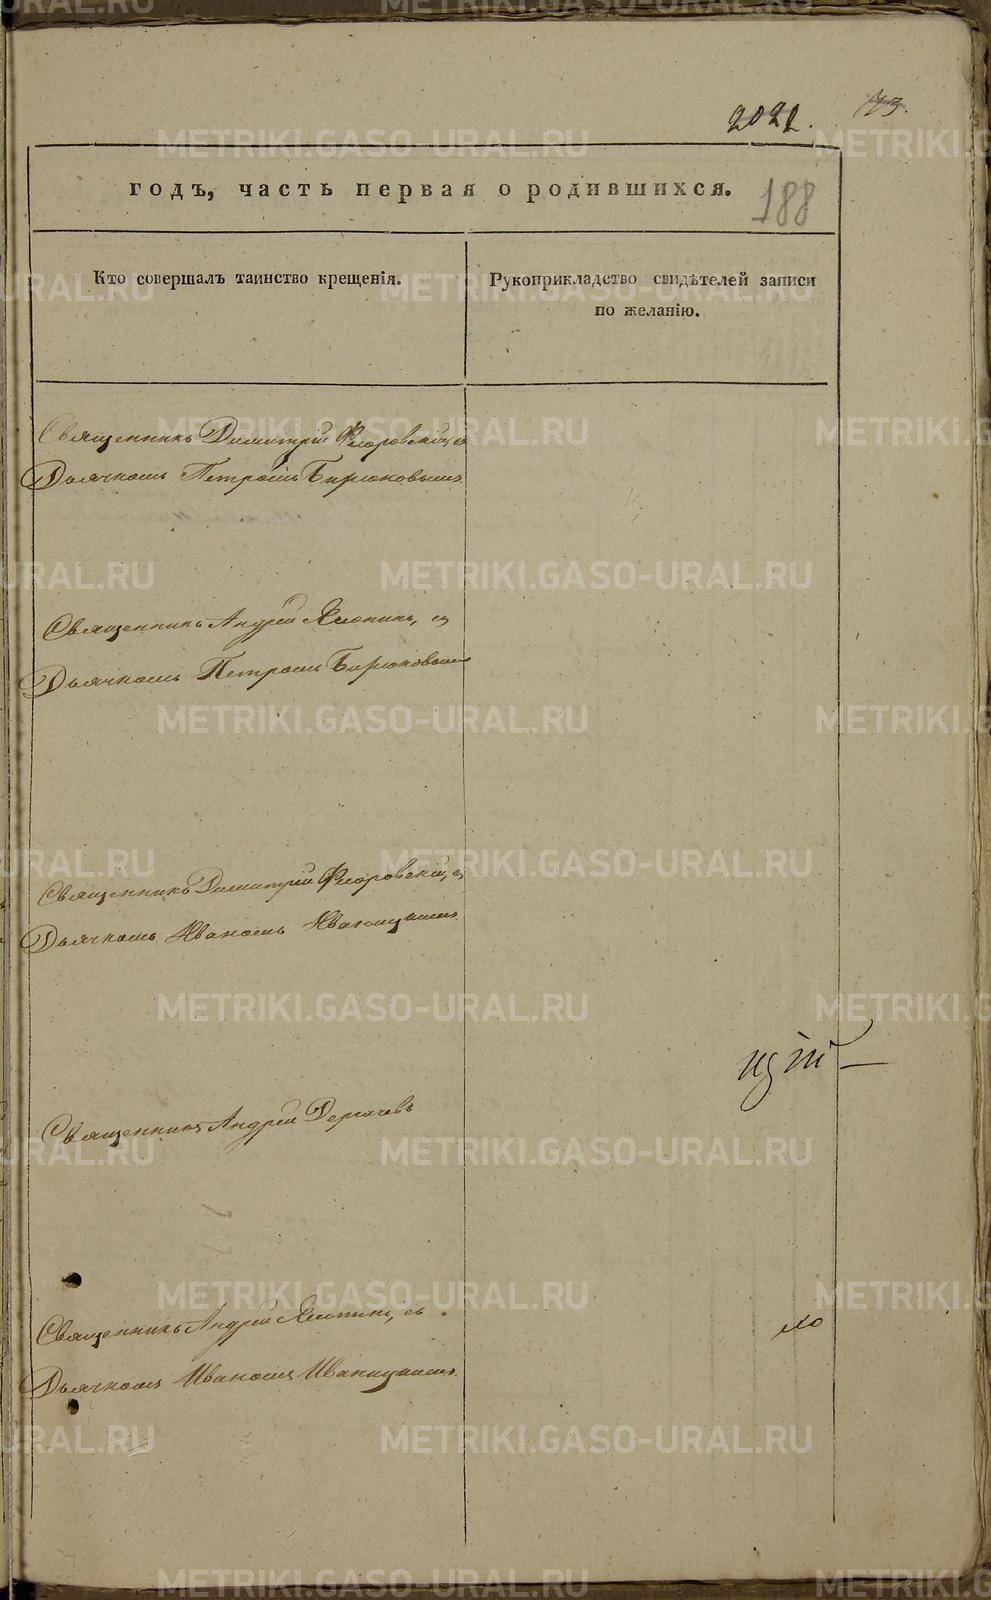 2022.
73.
годъ, часть первая о родившихся.
188
Кто совершалъ таинство крещенія.
Рукоприкладство свидѣтелей записи
по желанію.
Священникъ Димитрій Флоровскій, съ
Дьячкомъ Петромъ Бирюковымъ
Священникъ Андрей Яхонтинъ, съ
Дьячкомъ Петромъ Бирюковымъ
Священникъ Димитрій Флоровскій, съ
Дьячкомъ Иваномъ Иваницкимъ
Священникъ Андрей Дергачевъ
Священникъ Андрей съ
Дьячкомъ Иваномъ Иваницкимъ
METRIKI.GASO-URAL.RU